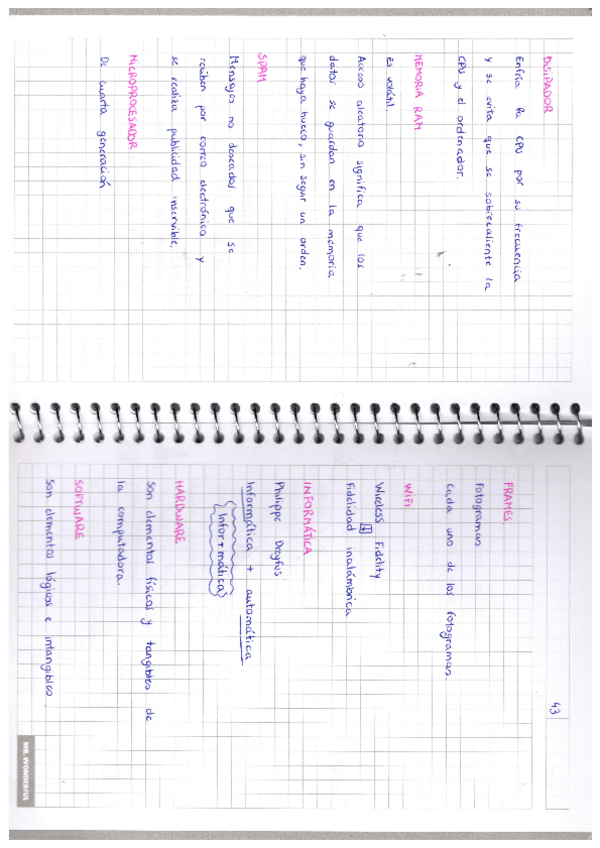 DISIPADOR
Enfría la CPU por su frecuencia
y se evita que se sobrecaliente la
CPU y el ordenador.
MEMORIA RAM
Es volátil.
Acceso aleatorio significa que los
datos se guardan en la memoria
que haya hueco, sin seguir un orden.
SPAM
Mensajes no deseados que se
reciben por correo electrónico y
se realiza publicidad inservible.
MICROPROCESADOR
De cuarta generación
43
FRAMES
Fotogramas
Cada uno de los fotogramas.
WIFI
Wireless Fidelity
Fidelidad inalámbrica
INFORMÁTICA
Philippe Dreyfus
Informática + automática
(Infor+mática)
HARDWARE
Son elementos físicos y tangibles de
la computadora.
SOFTWARE
Son elementos lógicos e intangibles.
MR. WONDERFUL